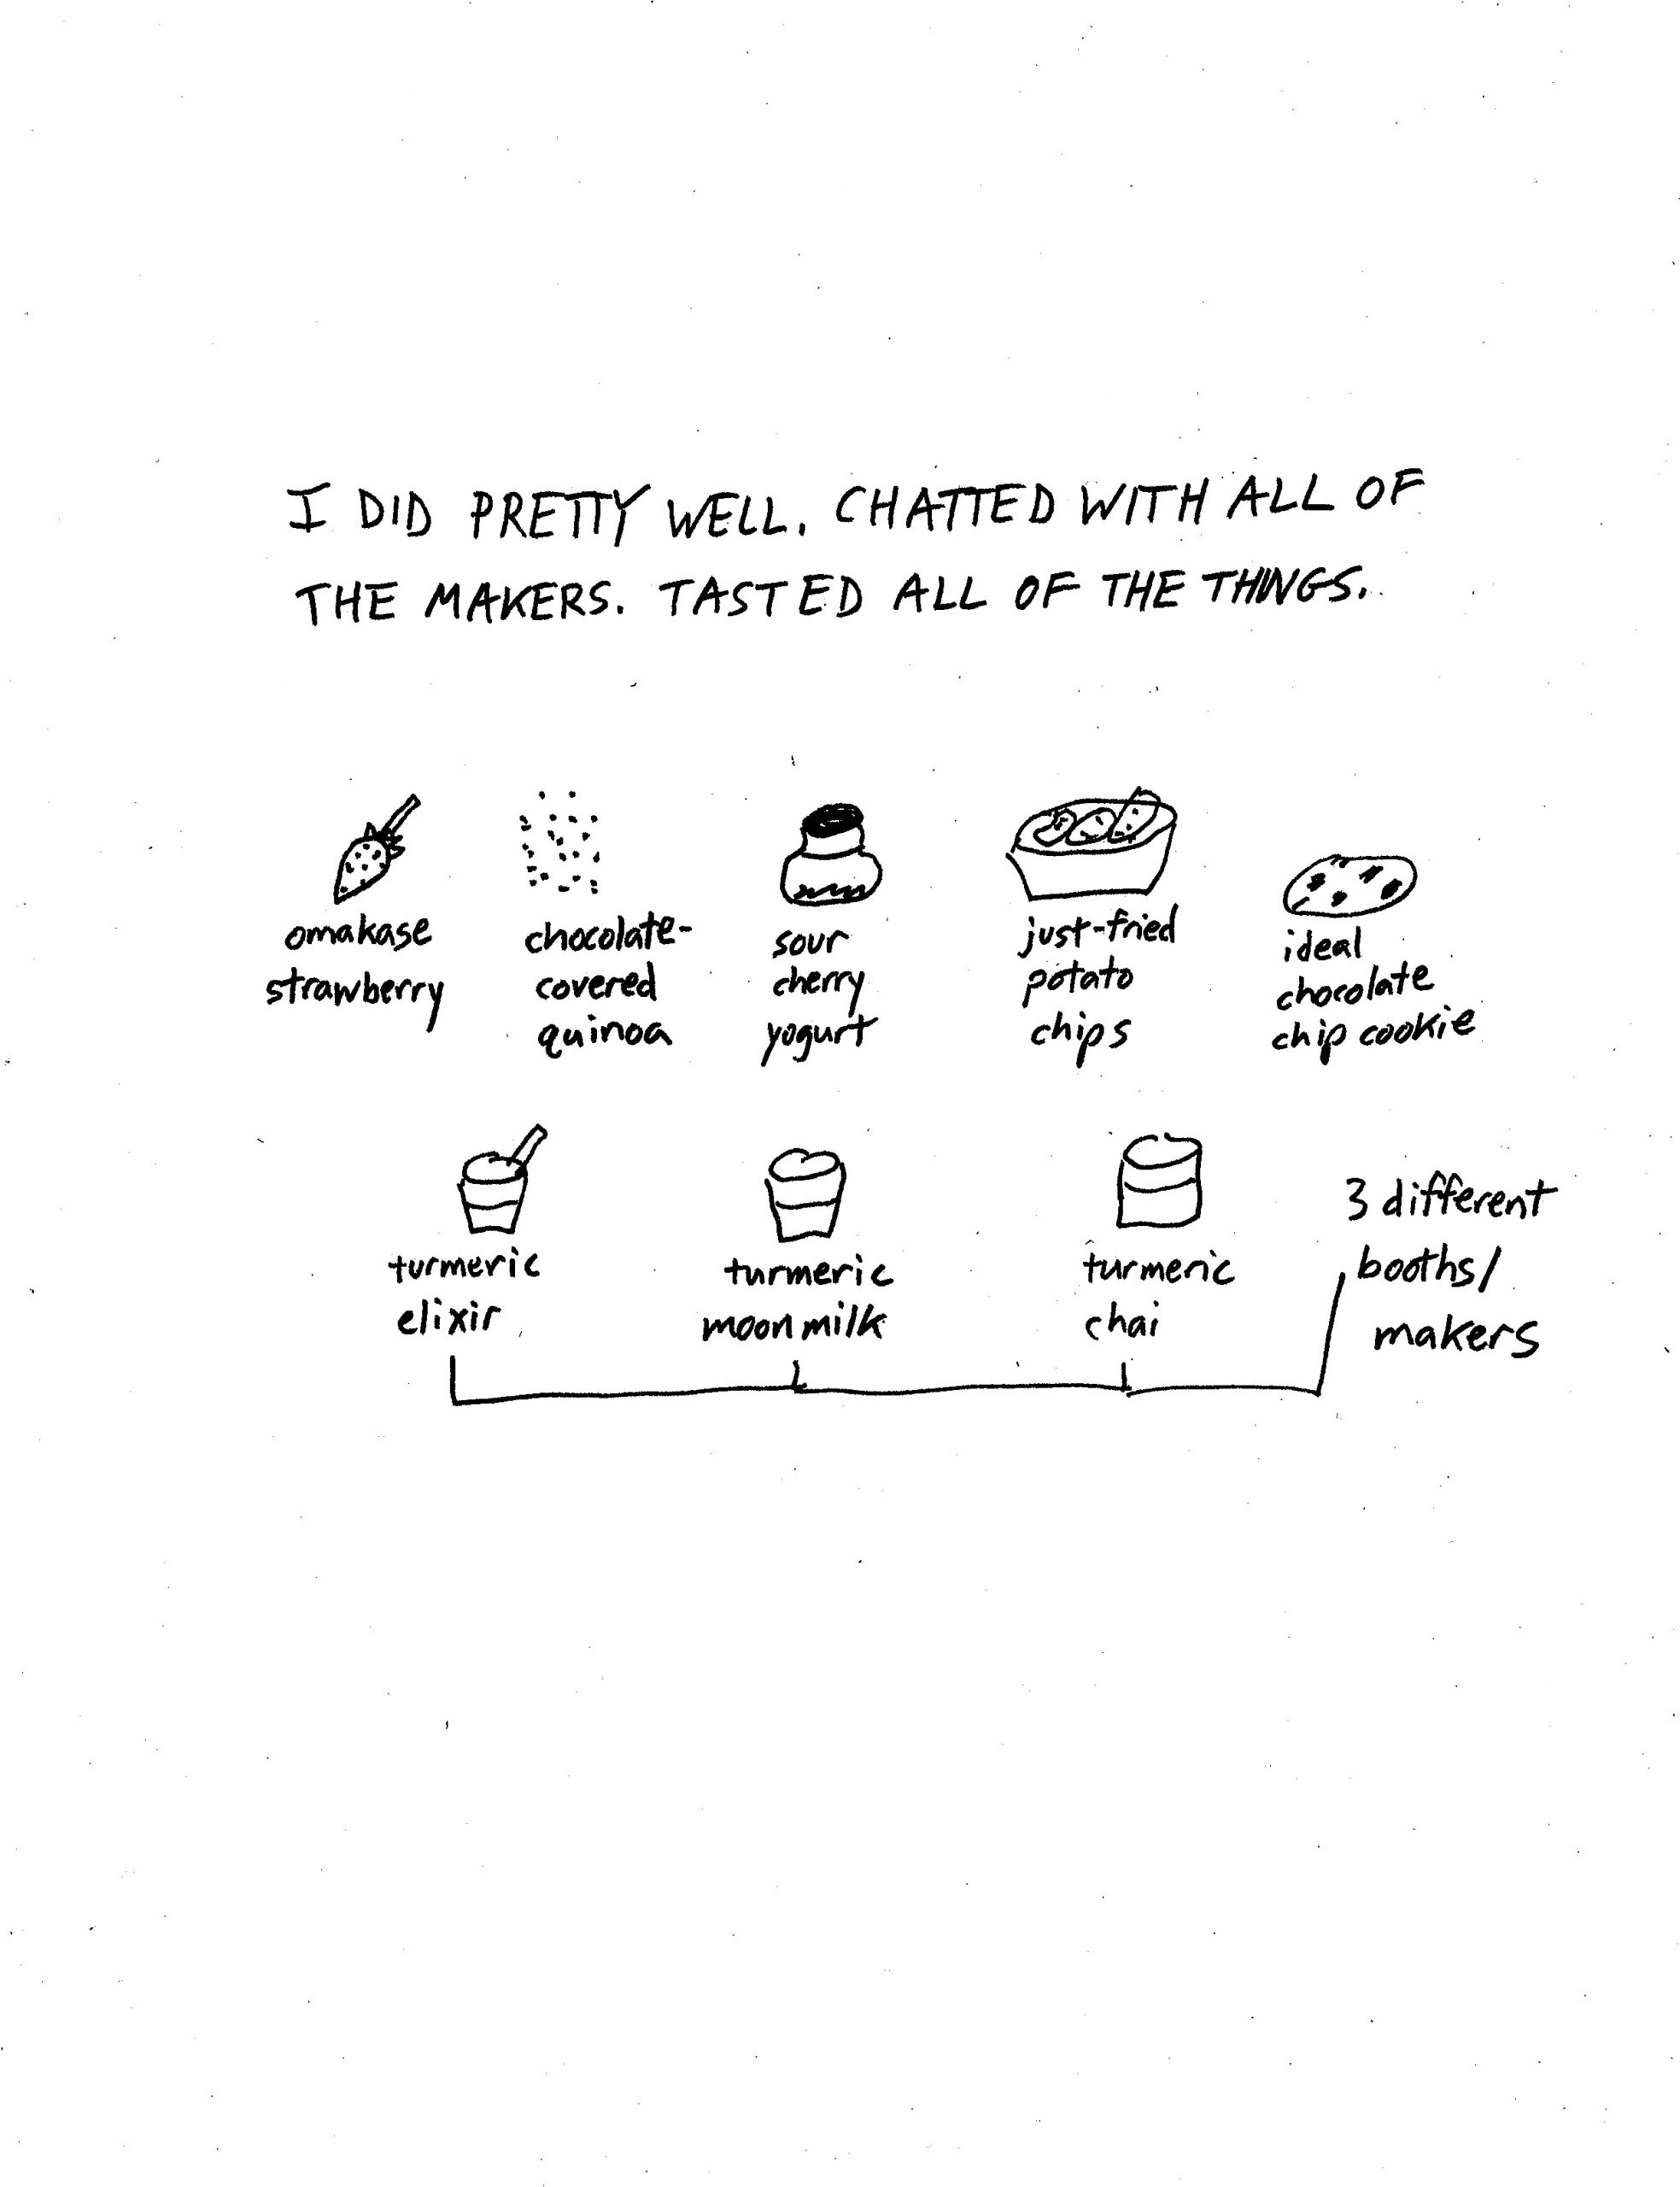 I DID PRETTY WELL. CHATTED WITH ALL OF
THE MAKERS. TASTED ALL OF THE THINGS.
omakase
strawberry
chocolate-
covered
quinoa
sour
cherry
yogurt
just-fried
potato
chips
ideal
chocolate
chip cookie
turmeric
elixir
turmeric
moon milk
turmeric
chai
3 different
booths/
makers